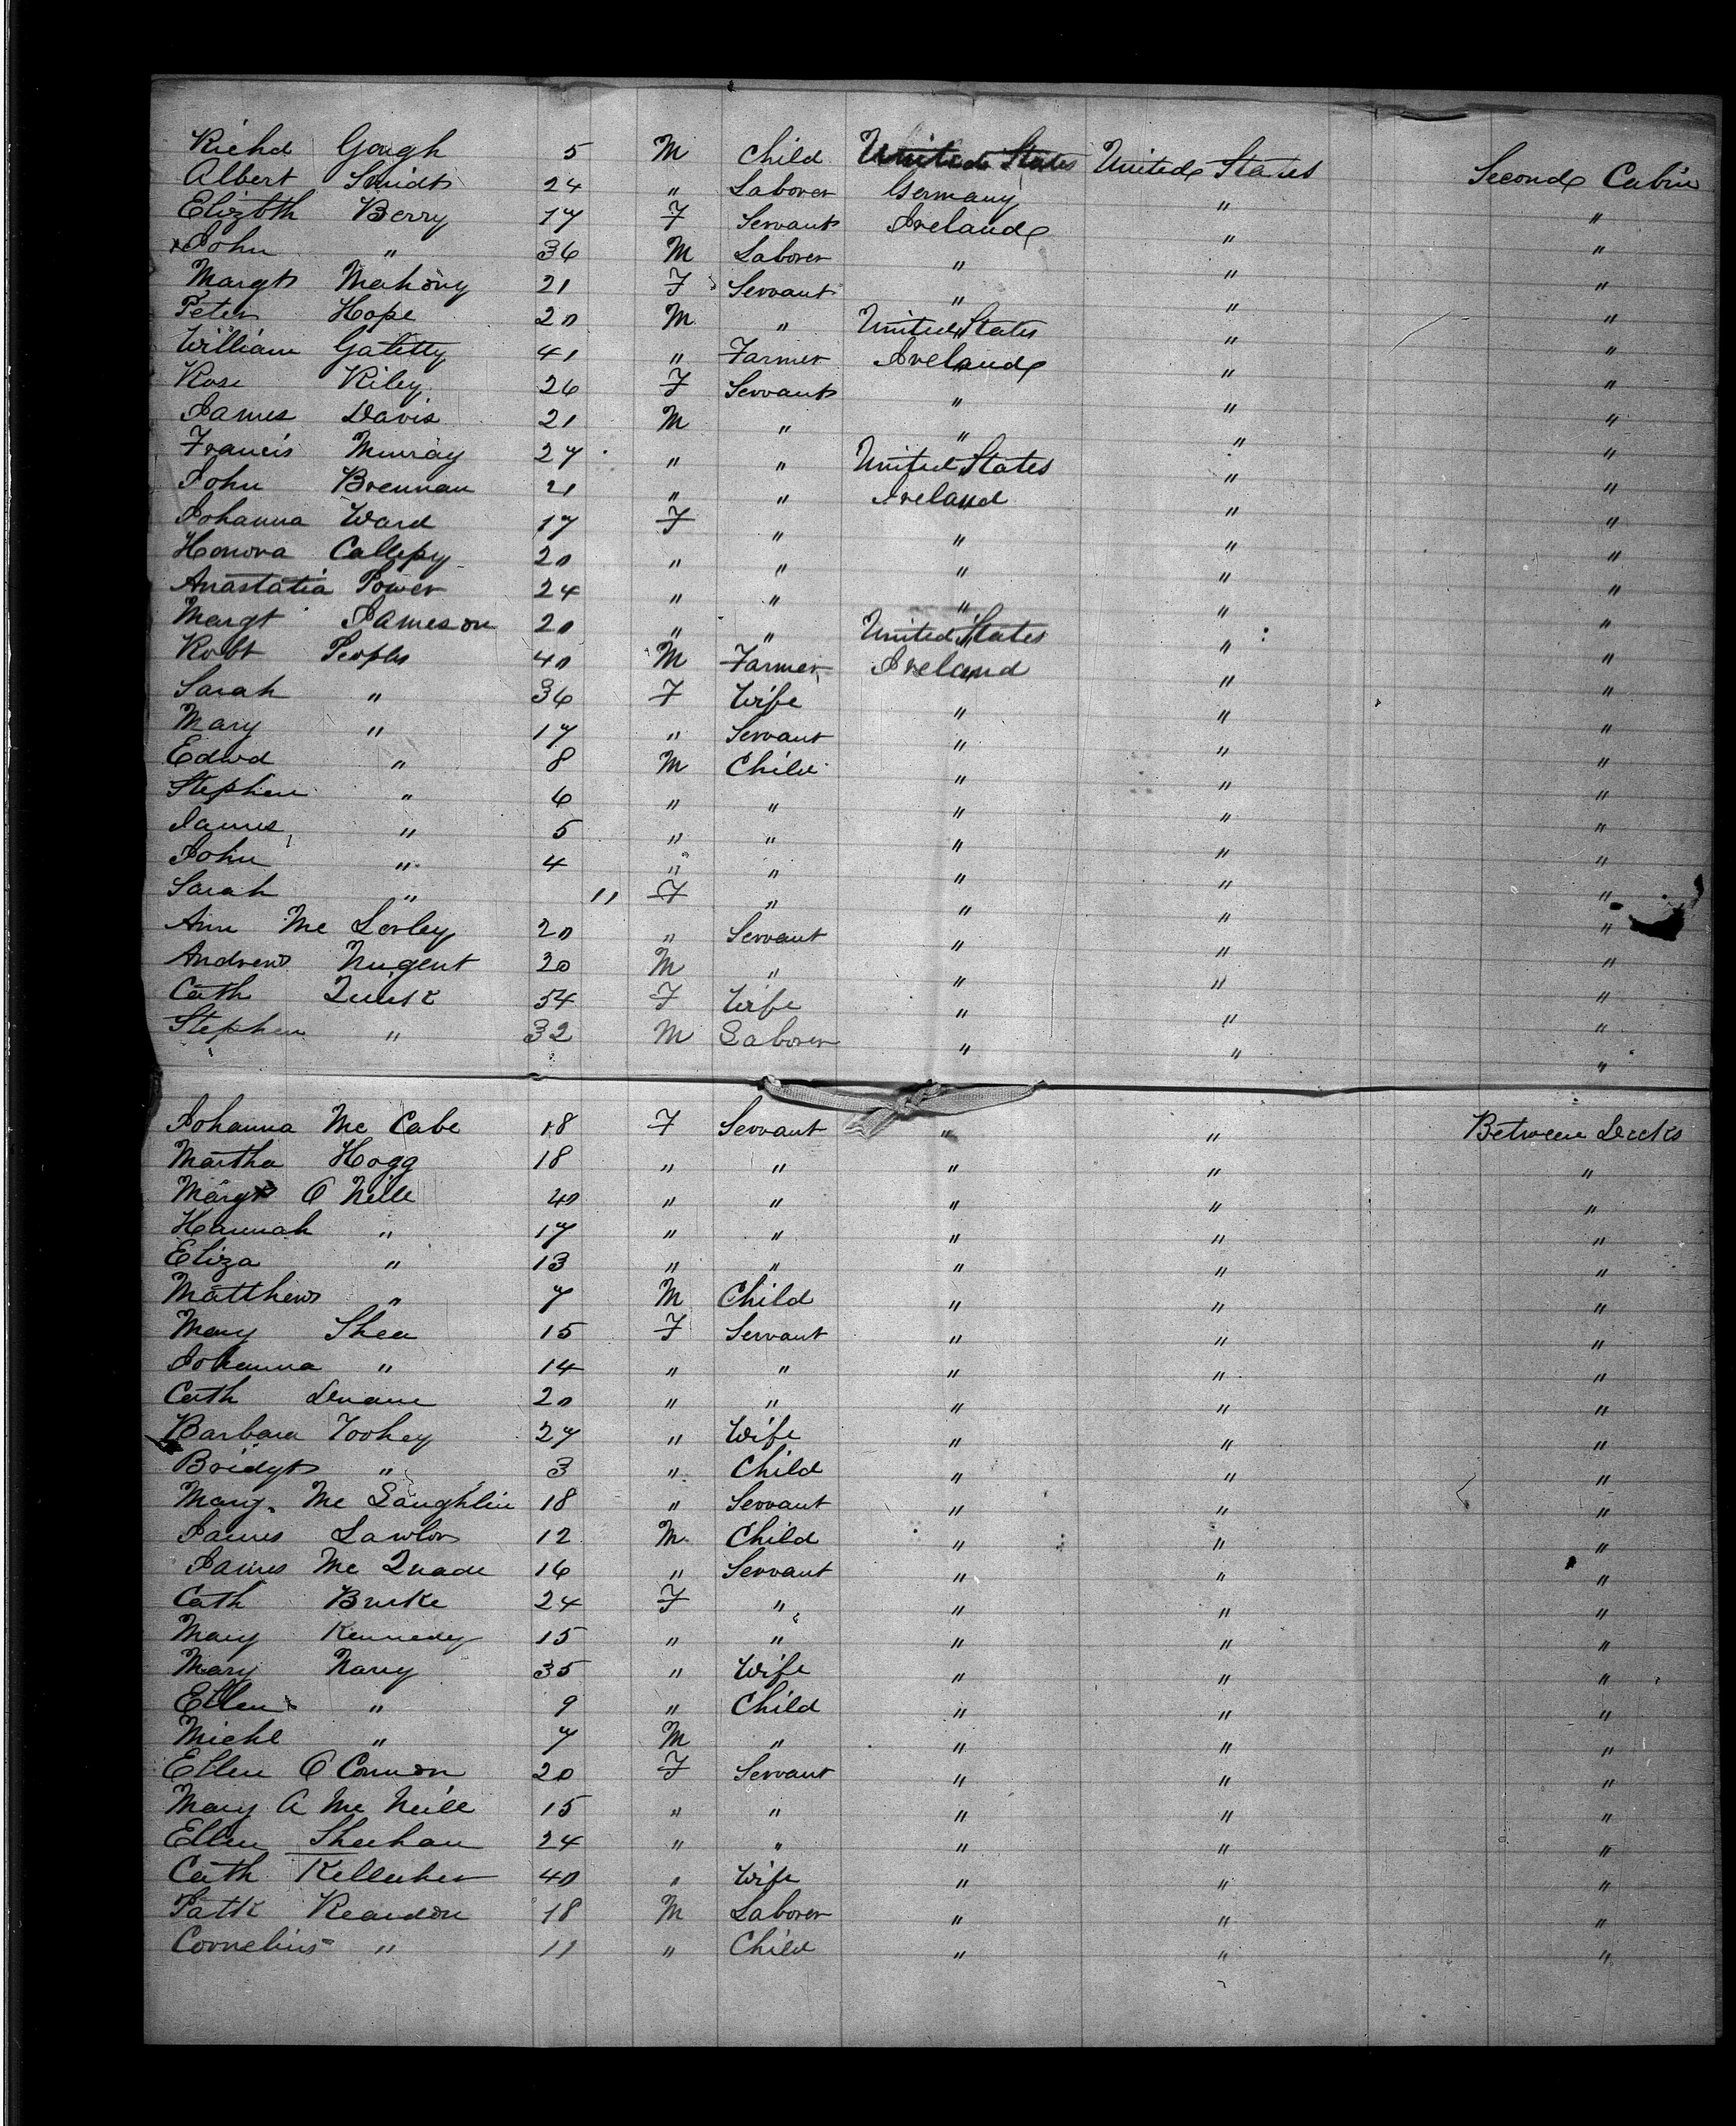 Richd Gough 5 M Child United States United States Second Cabin
Albert Smidt 24 " Laborer Germany " "
Elizbth Berry 17 F Servant Ireland " "
John " 36 M Laborer " " "
Margt Mahony 21 F Servant " " "
Peter Hope 20 M " United States " "
William Gatitty 41 " Farmer Ireland " "
Rose Riley 26 F Servant " " "
James Davis 21 M " " " "
Francis Murray 27 " " United States " "
John Brennan 21 " " Ireland " "
Johanna Ward 17 F " " " "
Honora Callepy 20 " " " " "
Anastatia Power 24 " " " " "
Margt Jameson 20 " " United States " "
Robt Peoples 40 M Farmer Ireland " "
Sarah " 36 F Wife " " "
Mary " 17 " Servant " " "
Edwd " 8 M Child " " "
Stephen " 6 " " " " "
James " 5 " " " " "
John " 4 " " " " "
Sarah " 11 F " " " "
Ann Mc Sorley 20 " Servant " " "
Andrew Nugent 30 M " " " "
Cath Quirk 54 F Wife " " "
Stephen " 32 M Laborer " " "
Johanna Mc Cabe 18 F Servant " " Between Decks
Martha Hogg 18 " " " " "
Margt O Neill 40 " " " " "
Hannah " 17 " " " " "
Eliza " 13 " " " " "
Matthew " 7 M Child " " "
Mary Shea 15 F Servant " " "
Johanna " 14 " " " " "
Cath Duane 20 " " " " "
Barbara Toohey 27 " Wife " " "
Bridgt " 3 " Child " " "
Mary Mc Laughlin 18 " Servant " " "
James Lawlor 12 M Child " " "
James Mc Quade 16 " Servant " " "
Cath Burke 24 F " " " "
Mary Kennedy 15 " " " " "
Mary Nary 35 " Wife " " "
Ellen " 9 " Child " " "
Michl " 7 M " " " "
Ellen O Connor 20 F Servant " " "
Mary A Mc Neill 15 " " " " "
Ellen Sheehan 24 " " " " "
Cath Kelleher 40 " Wife " " "
Patk Reardon 18 M Laborer " " "
Cornelius " 11 " Child " " "